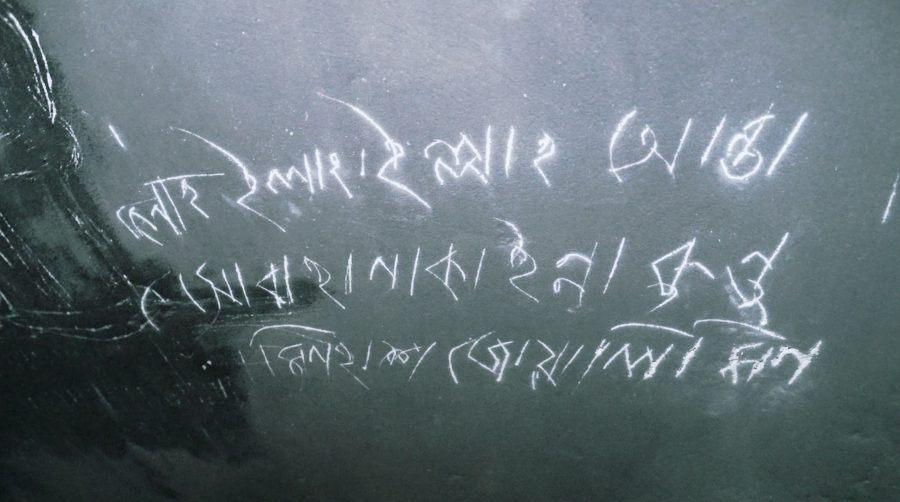 লাই ইলাহাইল্লাহ আন্তা
সোবাহানাকাইন্না কুন্তু
মিনাহাজ জোয়ালিমিন